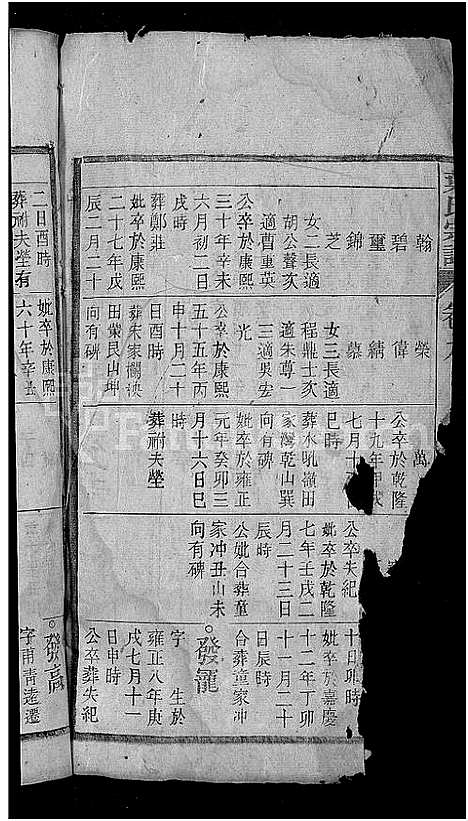 氏宗譜
翰
碧
璽
錦
芝
女二長適
胡公聲次
適曹重英
公卒於康熙
三十年辛未
六月初二日
戌時
葬鄭莊
妣卒於康熙
二十七年戊
辰二月二十
榮
偉
繡
慕
女三長適
程鼎士次
適朱尊一
三適吳宏
光
公卒於康熙
五十五年丙
申十月二十
日酉時
葬朱家欄
田業艮山坤
向有碑
萬
公卒於乾隆
十九年甲戌
七月十
巳時
葬水吼嶺田
家灣乾山巽
向有碑
妣卒於雍正
元年癸卯三
月十六日巳
時
葬祔夫塋
公卒失紀
妣卒於乾隆
七年壬戌二
月二十三日
辰時
公妣合葬童
家冲丑山未
向有碑
十日卯時
妣卒於嘉慶
十二年丁卯
十一月二十
日辰時
合葬童家冲
發寵
字 生於
雍正八年庚
戌七月十一
日申時
公卒葬失紀
二日酉時
葬祔夫塋有
妣卒於康熙
六十年辛丑
發嬴
字甫青遠遷